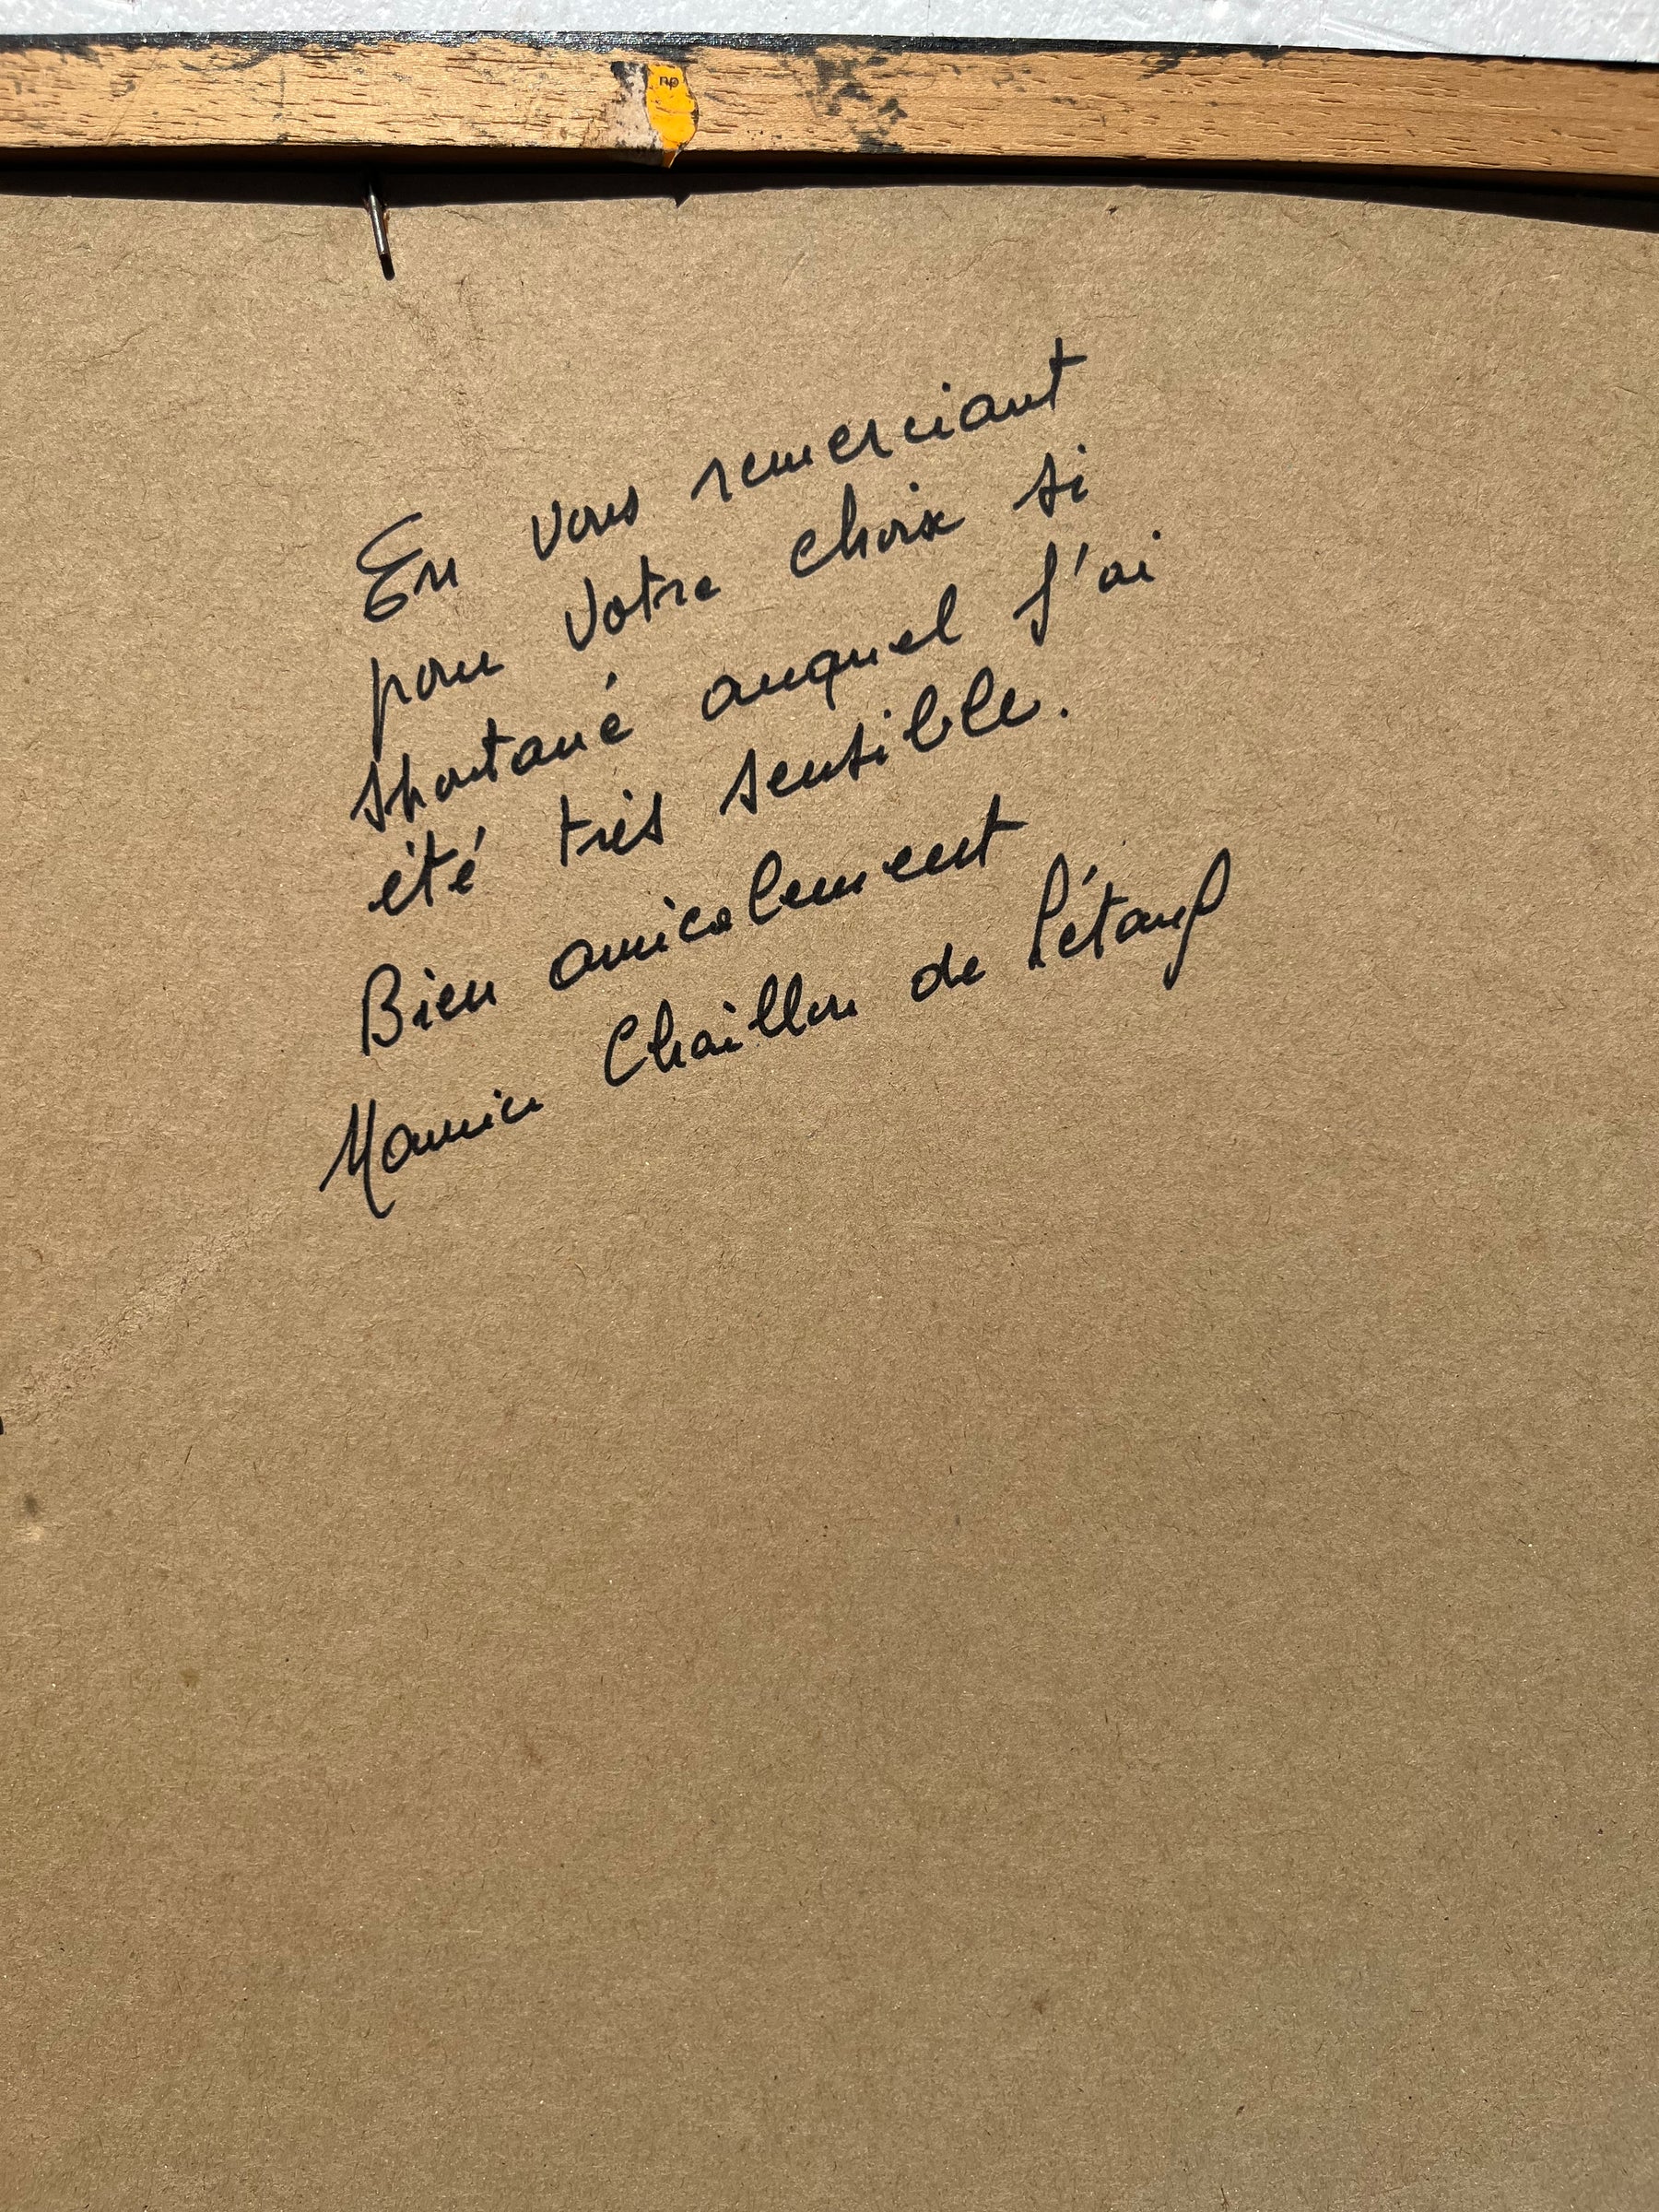 np
En vous remerciant
pour votre choix si
spontané auquel j'ai
été très sensible.
Bien amicalement
Maurice Chaillou de l'étang